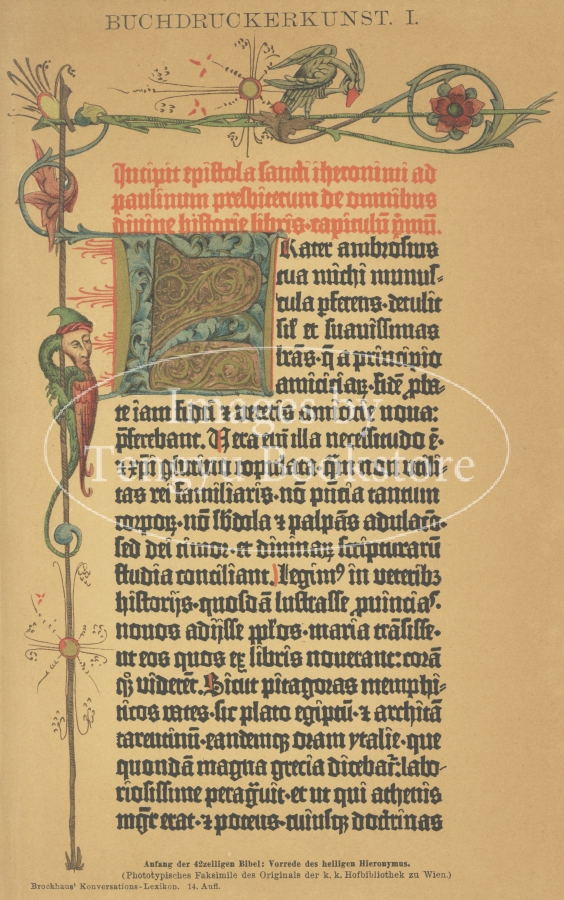 BUCHDRUCKERKUNST. I.
Incipit epistola sancti iheronimi ad
paulinum presbiterum de omnibus
divine historie libris·capitulũ p̃mũ.
Frater ambrosius
tua michi munus-
cula ꝑferens·detulit
sil' et suavissimas
lr̃as·q̃ a principio
amiciciaꝝ·fidẽ ꝓba-
te iam fidei ⁊ veteris amicicie nova:
ꝑferebant. Vera em̃ illa necessitudo ẽ·
⁊ xp̃i glutino copulata·qm̃ non vtili-
tas rei familiaris·nõ pñcia tantum
corpoꝝ·nõ sb̃dola ⁊ palpãs adulacõ·
sed dei timor·et divinaꝝ scripturarũ
studia conciliant. Legimꝰ in veteribꝫ
historijs·quosdã lustrasse ꝓuincias·
novos adijsse pp̃los·maria trãsisse·
ut eos quos ex libris noverant: corã
qꝫ viderẽt. Sicut pitagoras memphi-
ticos vates·sic plato egiptũ·⁊ architã
tarentinũ·eandemqꝫ oram ytalie·que
quondã magna grecia dicebat̃: labo-
riosissime peragͣuit·et ut qui athenis
mgr̃ erat·⁊ potens·cuiusqꝫ doctrinas
Anfang der 42zeiligen Bibel: Vorrede des heiligen Hieronymus.
(Phototypisches Faksimile des Originals der k. k. Hofbibliothek zu Wien.)
Brockhaus' Konversations-Lexikon. 14. Aufl.
Images by
Tengyu Bookstore